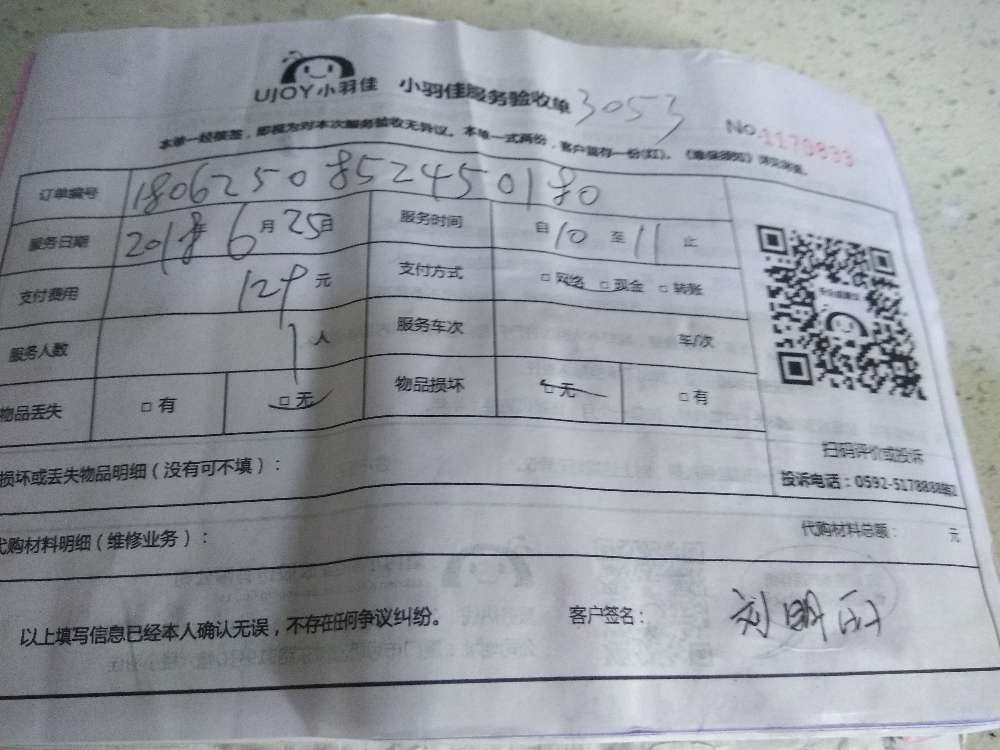 UJOY小羽佳 小羽佳服务验收单 3053
No.1179833
本单一经核签，即视为对本次服务验收无异议。本单一式两份，客户留存一份(红)。《维保须知》详见背面。
订单编号 1806250852450180
服务日期 2018年6月25日 服务时间 自10至11止
支付费用 129元 支付方式 □网络 □现金 □转账
服务人数 1人 服务车次 车/次
物品丢失 □有 □无 物品损坏 □无 □有
扫码评价或投诉
损坏或丢失物品明细（没有可不填）：
投诉电话：0592-5178888转2
代购材料明细（维修业务）： 代购材料总额： 元
以上填写信息已经本人确认无误，不存在任何争议纠纷。 客户签名： 刘明